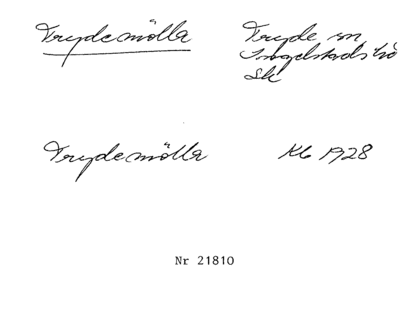 Trydemölla
Tryde sn
Ingelstads hd
Sk
Trydemölla
Kb 1928
Nr 21810